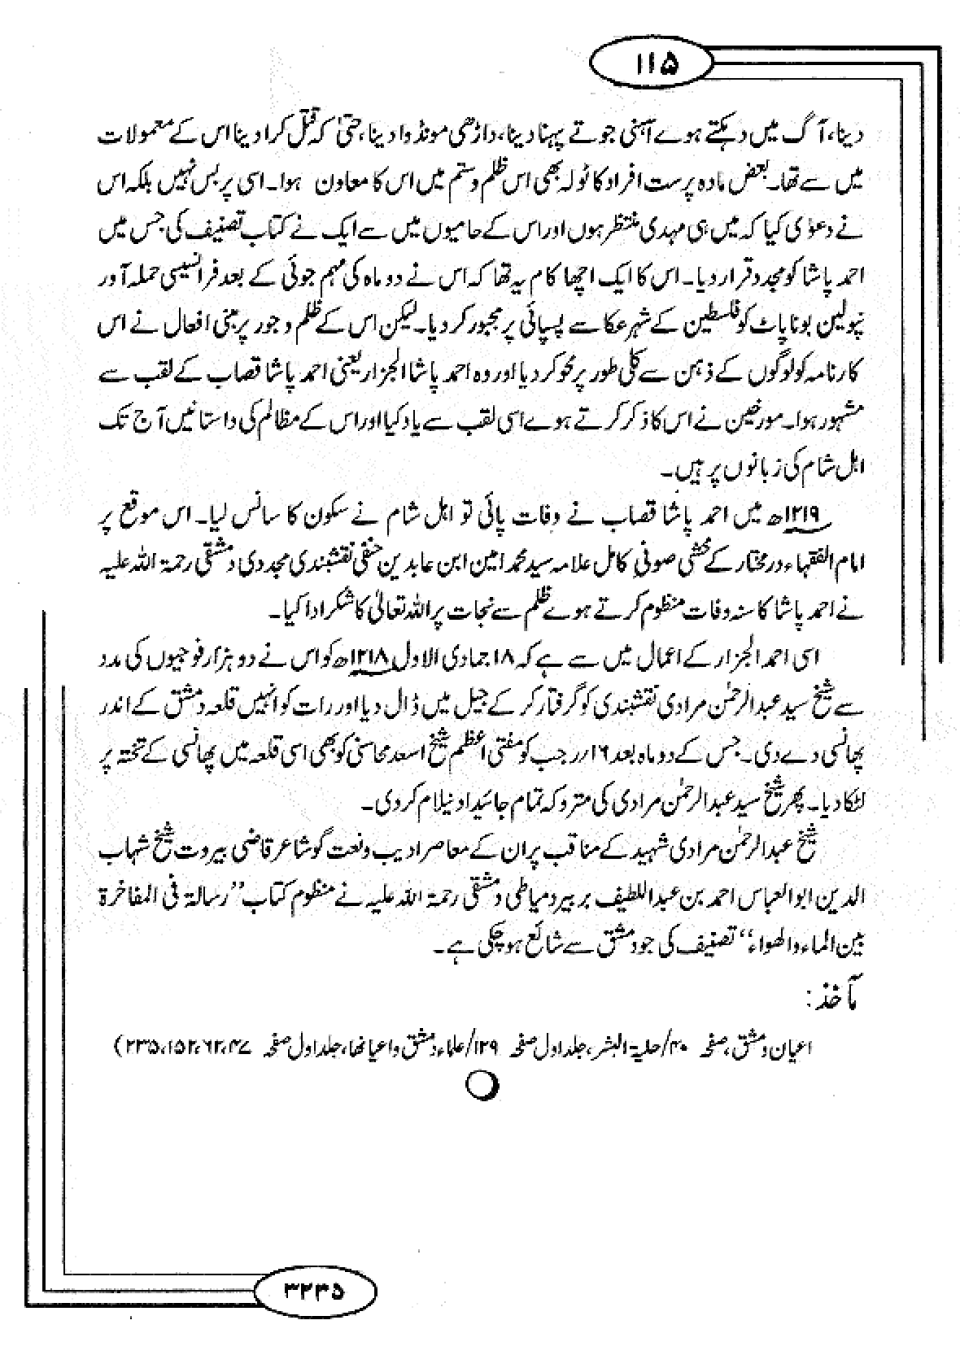 ۱۱۵
دینا، آگ میں دہکتے ہوے آہنی جوتے پہنا دینا، داڑھی مونڈوا دینا، حتیٰ کہ قتل کرا دینا اس کے معمولات
میں سے تھا۔ بعض مادہ پرست افراد کا ٹولہ بھی اس ظلم و ستم میں اس کا معاون ہوا۔ اسی پر بس نہیں بلکہ اس
نے دعوٰی کیا کہ میں ہی مہدی منتظر ہوں اور اس کے حامیوں میں سے ایک نے کتاب تصنیف کی جس میں
احمد پاشا کو مجدد قرار دیا۔ اس کا ایک اچھا کام یہ تھا کہ اس نے دو ماہ کی مہم جوئی کے بعد فرانسیسی حملہ آور
نپولین بونا پاٹ کو فلسطین کے شہر عکا سے پسپائی پر مجبور کر دیا۔ لیکن اس کے ظلم و جور پر مبنی افعال نے اس
کارنامہ کو لوگوں کے ذہن سے کلی طور پر محو کر دیا اور وہ احمد پاشا الجزار یعنی احمد پاشا قصاب کے لقب سے
مشہور ہوا۔ مورخین نے اس کا ذکر کرتے ہوے اسی لقب سے یاد کیا اور اس کے مظالم کی داستانیں آج تک
اہل شام کی زبانوں پر ہیں۔
۱۲۱۹ھ میں احمد پاشا قصاب نے وفات پائی تو اہل شام نے سکون کا سانس لیا۔ اس موقع پر
امام الفقہاء در مختار کے محشی صوفی کامل علامہ سید محمد امین ابن عابدین حنفی نقشبندی مجددی دمشقی رحمۃ اللہ علیہ
نے احمد پاشا کا سنہ وفات منظوم کرتے ہوے ظلم سے نجات پر اللہ تعالیٰ کا شکر ادا کیا۔
اسی احمد الجزار کے اعمال میں سے ہے کہ ۱۸ جمادی الاول ۱۲۱۸ھ کو اس نے دو ہزار فوجیوں کی مدد
سے شیخ سید عبدالرحمٰن مرادی نقشبندی کو گرفتار کر کے جیل میں ڈال دیا اور رات کو انہیں قلعہ دمشق کے اندر
پھانسی دے دی۔ جس کے دو ماہ بعد ۱۶؍رجب کو مفتی اعظم شیخ اسعد محاسنی کو بھی اسی قلعہ میں پھانسی کے تختہ پر
لٹکا دیا۔ پھر شیخ سید عبدالرحمٰن مرادی کی متروکہ تمام جائیداد نیلام کر دی۔
شیخ عبدالرحمٰن مرادی شہید کے مناقب پر ان کے معاصر ادیب و نعت گو شاعر قاضی بیروت شیخ شہاب
الدین ابوالعباس احمد بن عبداللطیف بربیر دمیاطی دمشقی رحمۃ اللہ علیہ نے منظوم کتاب ”رسالۃ فی المفاخرۃ
بین الماء والھواء“ تصنیف کی جو دمشق سے شائع ہو چکی ہے۔
مآخذ:
اعیان دمشق، صفحہ ۴۰/حلیۃ البشر، جلد اول صفحہ ۱۲۹/علماء دمشق واعیانھا، جلد اول صفحہ ۴۷، ۶۲، ۱۵۲، ۲۳۵)
۳۲۳۵